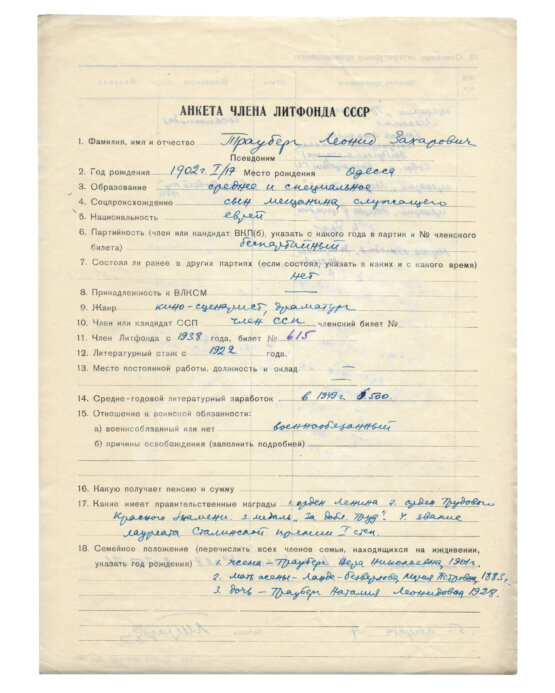 АНКЕТА ЧЛЕНА ЛИТФОНДА СССР
1. Фамилия, имя и отчество Трауберг Леонид Захарович
Псевдоним
2. Год рождения 1902 г. I/17 Место рождения Одесса
3. Образование среднее и специальное
4. Соцпроисхождение сын мещанина служащего
5. Национальность еврей
6. Партийность (член или кандидат ВКП(б), указать с какого года в партии и № членского
билета) беспартийный
7. Состоял ли ранее в других партиях (если состоял, указать в каких и с какого время)
нет
8. Принадлежность к ВЛКСМ —
9. Жанр кино-сценарист, драматург
10. Член или кандидат ССП член ССП членский билет №
11. Член Литфонда с 1938 года, билет № 615
12. Литературный стаж с 1922 года.
13. Место постоянной работы, должность и оклад —
14. Средне-годовой литературный заработок в 1949 г. 6500
15. Отношение к воинской обязанности:
а) военнообязанный или нет военнообязанный
б) причины освобождения (заполнить подробней)
16. Какую получает пенсию и сумму
17. Какие имеет правительственные награды 1. орден Ленина 2. орден Трудового
Красного Знамени. 3. медаль „За добл. труд". 4. звание
лауреата Сталинской премии I степ.
18. Семейное положение (перечислить всех членов семьи, находящихся на иждивении,
указать год рождения) 1. жена – Трауберг Вера Николаевна, 1901 г.
2. мать жены – Петровна, 1883 г.
3. дочь – Трауберг Наталия Леонидовна 1928.